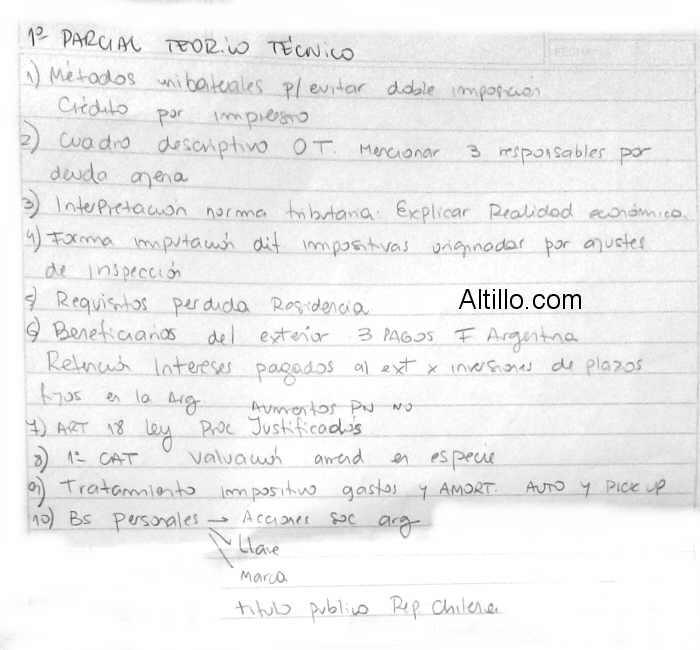 1º PARCIAL TEORICO TÉCNICO
1) Métodos unilaterales p/ evitar doble imposición
Crédito por impuesto
2) Cuadro descriptivo OT. Mencionar 3 responsables por
deuda ajena
3) Interpretación norma tributaria. Explicar Realidad económica.
4) Forma imputación dif impositivas originadas por ajustes
de inspección
5) Requisitos perdida Residencia
Altillo.com
6) Beneficiarios del exterior 3 PAGOS F Argentina
Retención Intereses pagados al ext x inversiones de plazos
fijos en la Arg.
Aumentos PN NO
7) ART 18 Ley Proc Justificados
8) 1º CAT valuación arrend en especie
9) Tratamiento impositivo gastos y AMORT. AUTO Y PICK UP
10) Bs Personales → Acciones soc arg
Llave
Marca
titulo publico Rep Chilena